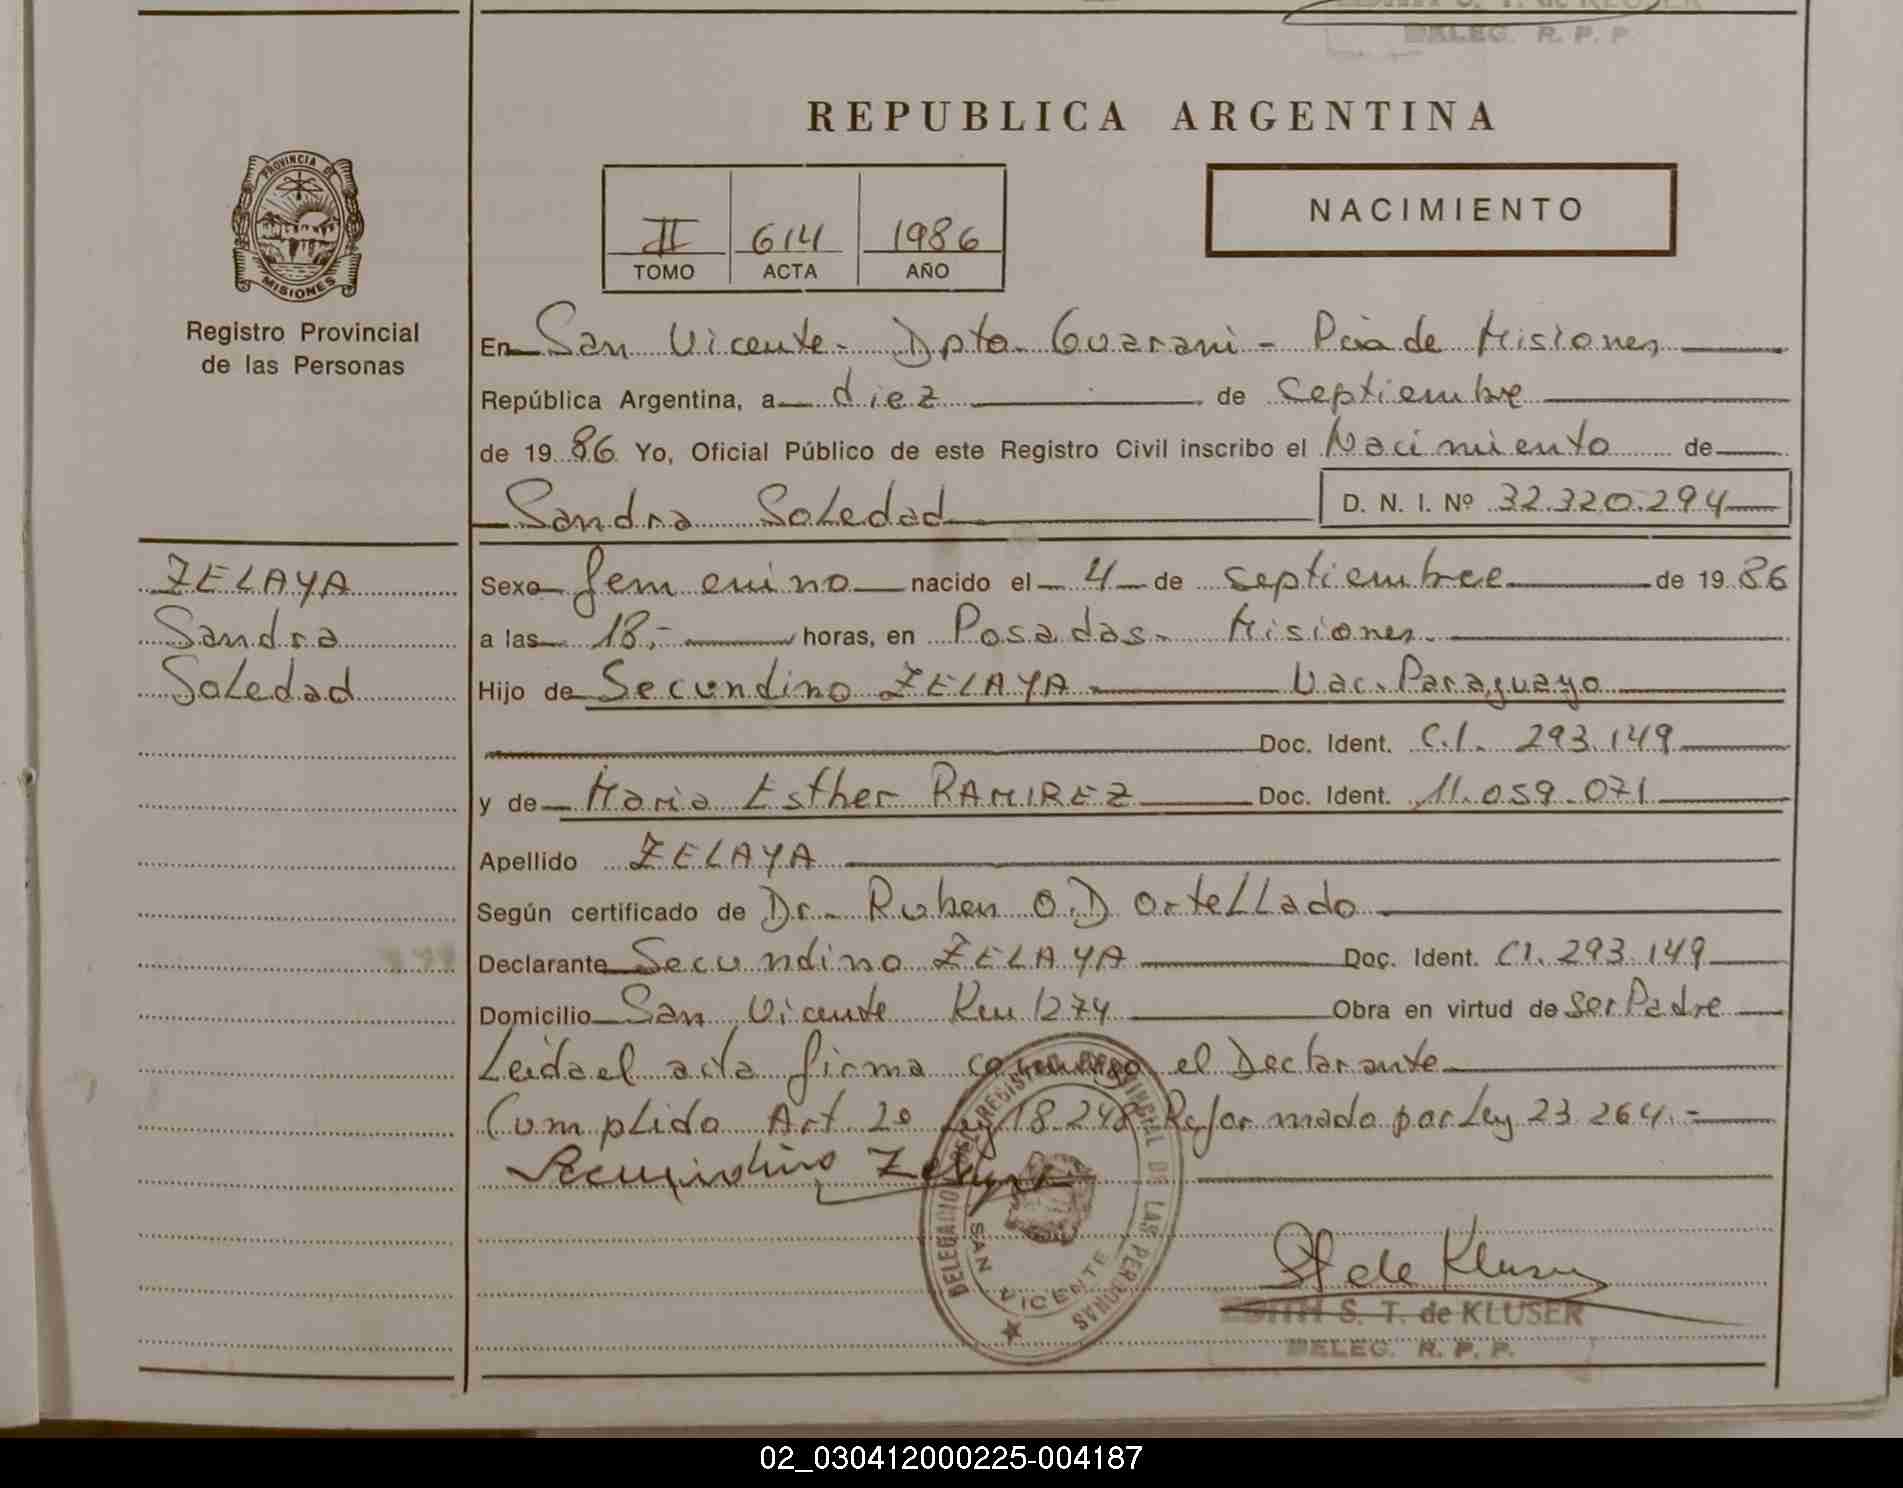 DELEG. R. P. P
REPUBLICA ARGENTINA
PROVINCIA DE
MISIONES
Registro Provincial
de las Personas
II 614 1986
TOMO ACTA AÑO
NACIMIENTO
En San Vicente - Dpto Guarani - Pcia de Misiones
República Argentina, a diez de septiembre
de 19 86 Yo, Oficial Público de este Registro Civil inscribo el Nacimiento de
Sandra Soledad D. N. I. Nº 32.320.294
ZELAYA
Sandra
Soledad
Sexo femenino nacido el 4 de septiembre de 19 86
a las 18,- horas, en Posadas - Misiones.
Hijo de Secundino ZELAYA Nac. Paraguayo
Doc. Ident. C.I. 293.149
y de Maria Esther RAMIREZ Doc. Ident. 11.059.071
Apellido ZELAYA
Según certificado de Dr. Ruben O.D Ortellado
Declarante Secundino ZELAYA Doc. Ident. CI. 293.149
Domicilio San Vicente Km 1274 Obra en virtud de ser Padre
Leida el acta firma conmigo el Declarante
Cumplido Art. 2º Ley 18.248 Reformado por Ley 23.264.-
Secundino Zelaya
DELEGACION DEL REGISTRO PROVINCIAL DE LAS PERSONAS
SAN VICENTE
St de Kluser
EDITH S. T. de KLUSER
DELEG. R. P. P.
02_030412000225-004187